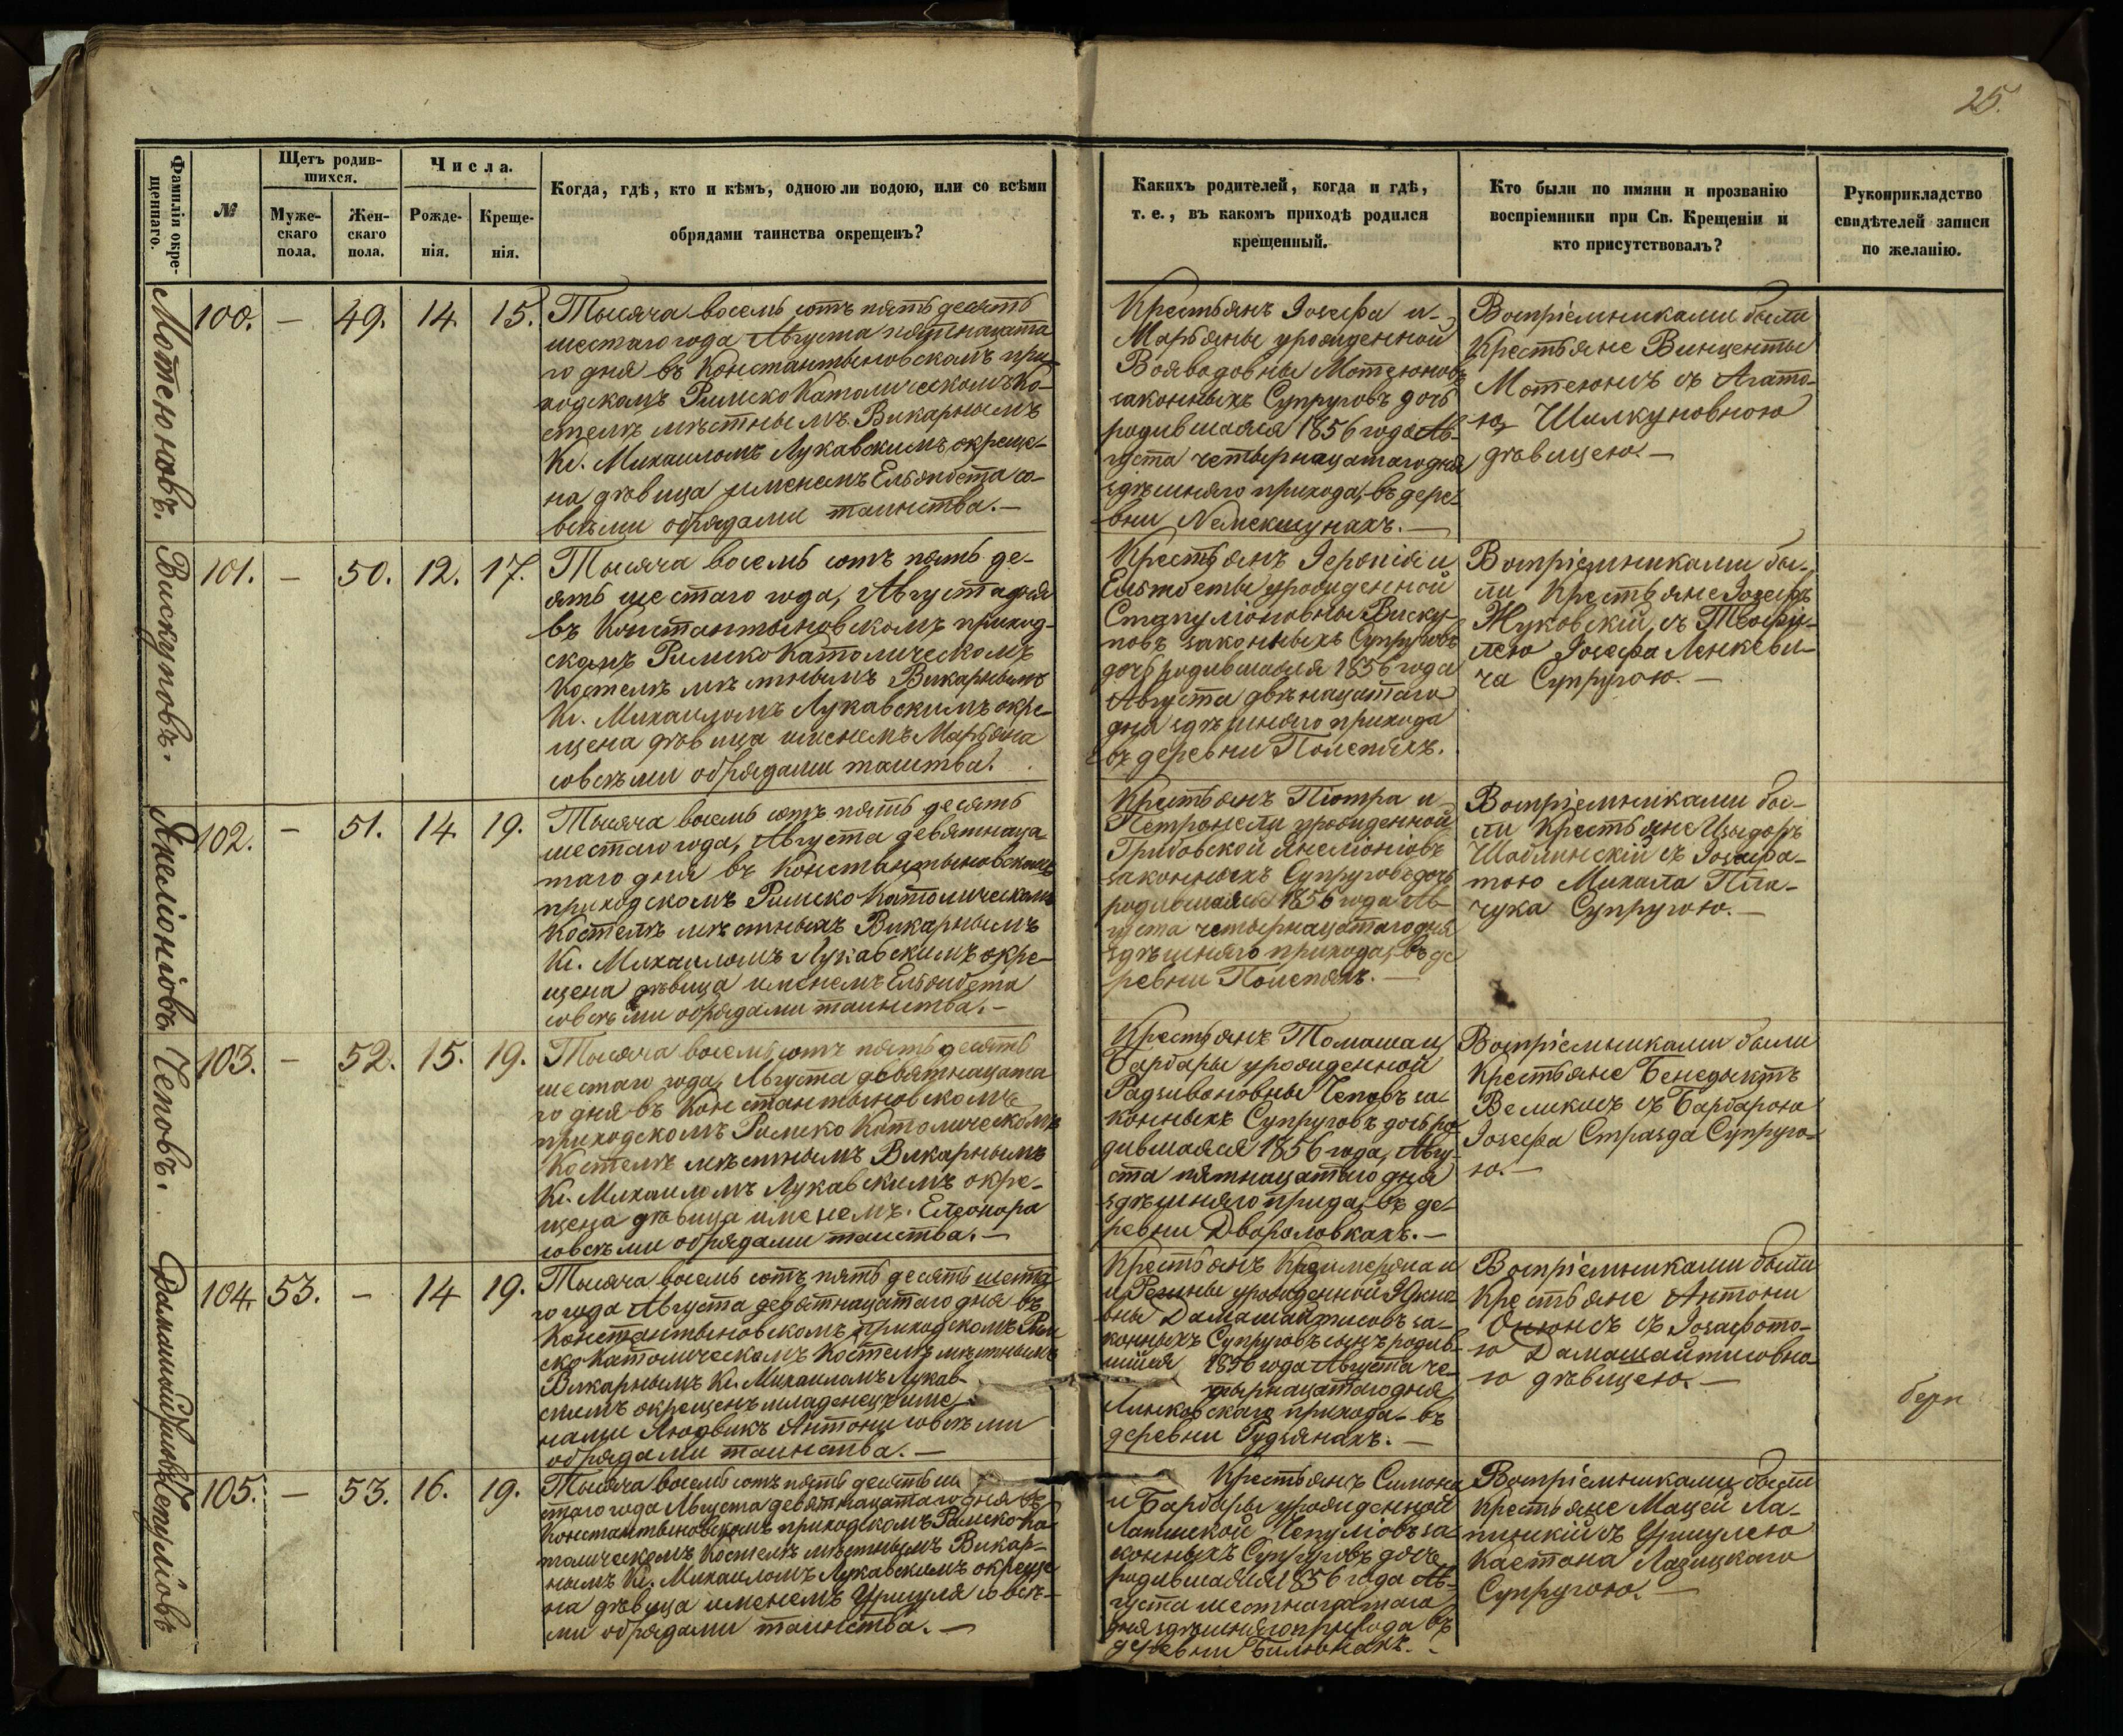 25.
Фамилія окре-
щеннаго.
№
Щетъ родив-
шихся.
Муже-
скаго
пола.
Жен-
скаго
пола.
Числа.
Рожде-
нія.
Креще-
нія.
Когда, гдѣ, кто и кѣмъ, одною ли водою, или со всѣми
обрядами таинства окрещенъ?
Какихъ родителей, когда и гдѣ,
т. е., въ какомъ приходѣ родился
крещенный.
Кто были по имяни и прозванію
воспріемники при Св. Крещеніи и
кто присутствовалъ?
Рукоприкладство
свидѣтелей записи
по желанію.
Мотеюновъ.
100.
—
49.
14.
15.
Тысяча восемь сотъ пять десять
шестаго года Августа пятнацата
го дня въ Константыновскомъ при-
ходскомъ Римско Католическомъ Ко-
стелѣ мѣстнымъ Викарнымъ
Кс. Михаиломъ Лукавскимъ окреще-
на дѣвица именемъ Ельжбета со
всѣми обрядами таинства. —
Крестьянъ Іосефа и
Марьяны урожденной
Вояводовны Мотеюновъ
законныхъ Супруговъ дочь
родившаяся 1856 года Ав-
густа четырнацатаго дня
здѣшняго прихода, въ дере-
вни —
Воспріемниками были
Крестьяне Винценты
Мотеюнсъ съ Агато-
ю Шилкуновною
дѣвицею. —
Вискуповъ.
101.
—
50.
12.
17.
Тысяча восемь сотъ пять де-
ять шестаго года, Августа дня
въ Константыновскомъ приход-
скомъ Римско Католическомъ
Костелѣ мѣстнымъ Викарнымъ
Кс. Михаиломъ Лукавскимъ окре-
щена дѣвица именемъ Марьяна
совсѣми обрядами таинства.
Крестьянъ и
Ельжбеты урожденной
Виску-
повъ законныхъ Супруговъ
дочь родившаяся 1856 года
Августа двѣнацатаго
дня здѣшняго прихода
въ деревни Поцепяхъ.
Воспріемниками бы-
ли Крестьяне Іозефъ
Жуковскій съ Теофи-
лею Іосефа Ленкеви-
ча Супругою. —
Янеліоніовъ
102.
—
51.
14.
19.
Тысяча восемь сотъ пять десять
шестаго года, Августа девятнаца-
таго дня въ Константыновскомъ
приходскомъ Римско Католическомъ
Костелѣ мѣстныхъ Викарнымъ
Кс. Михаиломъ Лукавскимъ окре-
щена дѣвица именемъ Ельжбета
совсѣми обрядами таинства. —
Крестьянъ Піотра и
Петронели урожденной
Грибовской Янеліоніовъ
законныхъ Супруговъ дочь
родившаяся 1856 года Ав-
густа четырнацатаго дня
здѣшняго прихода, въ де
ревни Поцепяхъ. —
Воспріемниками бы-
ли Крестьяне Изыдоръ
Шаблинскій съ Іозефа-
тою Михала Пла-
чука Супругою. —
Чеповъ.
103.
—
52.
15.
19.
Тысяча восемь сотъ пять десять
шестаго года, Августа девятнацата
го дня въ Константыновскомъ
приходскомъ Римско Католическомъ
Костелѣ мѣстнымъ Викарнымъ
Кс. Михаиломъ Лукавскимъ окре-
щена дѣвица именемъ Елеонора
совсѣми обрядами таиства. —
Крестьянъ Томаша и
Барбары урожденной
Радзивоновны Чеповъ за
конныхъ Супруговъ дочь ро
дившаяся 1856 года, Авгу-
ста пятнацатаго дня
здѣшняго прихода, въ де-
ревни Двораловкахъ. —
Воспріемниками были
Крестьяне Бенедыктъ
Великисъ съ Барбарою
Іосефа Стразда Супруго-
ю. —
104.
53.
—
14
19.
Тысяча восемь сотъ пять десять шеста
го года Августа девятнацатаго дня въ
Константыновскомъ приходскомъ Рим
ско Католическомъ Костелѣ мѣстнымъ
Викарнымъ Кс. Михаиломъ Лукав-
скимъ окрещенъ младенецъ име-
нами Людвикъ Антони совсѣми
обрядами таинства. —
Крестьянъ Казимержа и
и Регины урожденной
вны Дамашайтисовъ за-
конныхъ Супруговъ сынъ родив-
шійся 1856 года Августа че-
тырнацатаго дня
Линковскаго прихода въ
деревни Гудзянахъ. —
Воспріемниками были
Крестьяне Антони
съ Іозафато-
ю Дамашайтисовно-
ю дѣвицею. —
Чепуліовъ
105.
—
53.
16.
19.
Тысяча восемь сотъ пять десять ше
стаго года Августа девятнацатаго дня въ
Константыновскомъ приходскомъ Римско Ка
толическомъ Костелѣ мѣстнымъ Викар-
нымъ Кс. Михаиломъ Лукавскимъ окреще
на дѣвица именемъ Уршуля со всѣ-
ми обрядами таинства. —
Крестьянъ Симона
и Барбары урожденной
Лапинской Чепуліовъ за
конныхъ Супруговъ дочь
родившаяся 1856 года Ав-
густа шестнацатаго
дня здѣшняго прихода въ
деревни Билюнахъ. —
Воспріемниками были
Крестьяне Мацей Ла-
пинскій съ Уршулею
Каетана Лазицкаго
Супругою. —